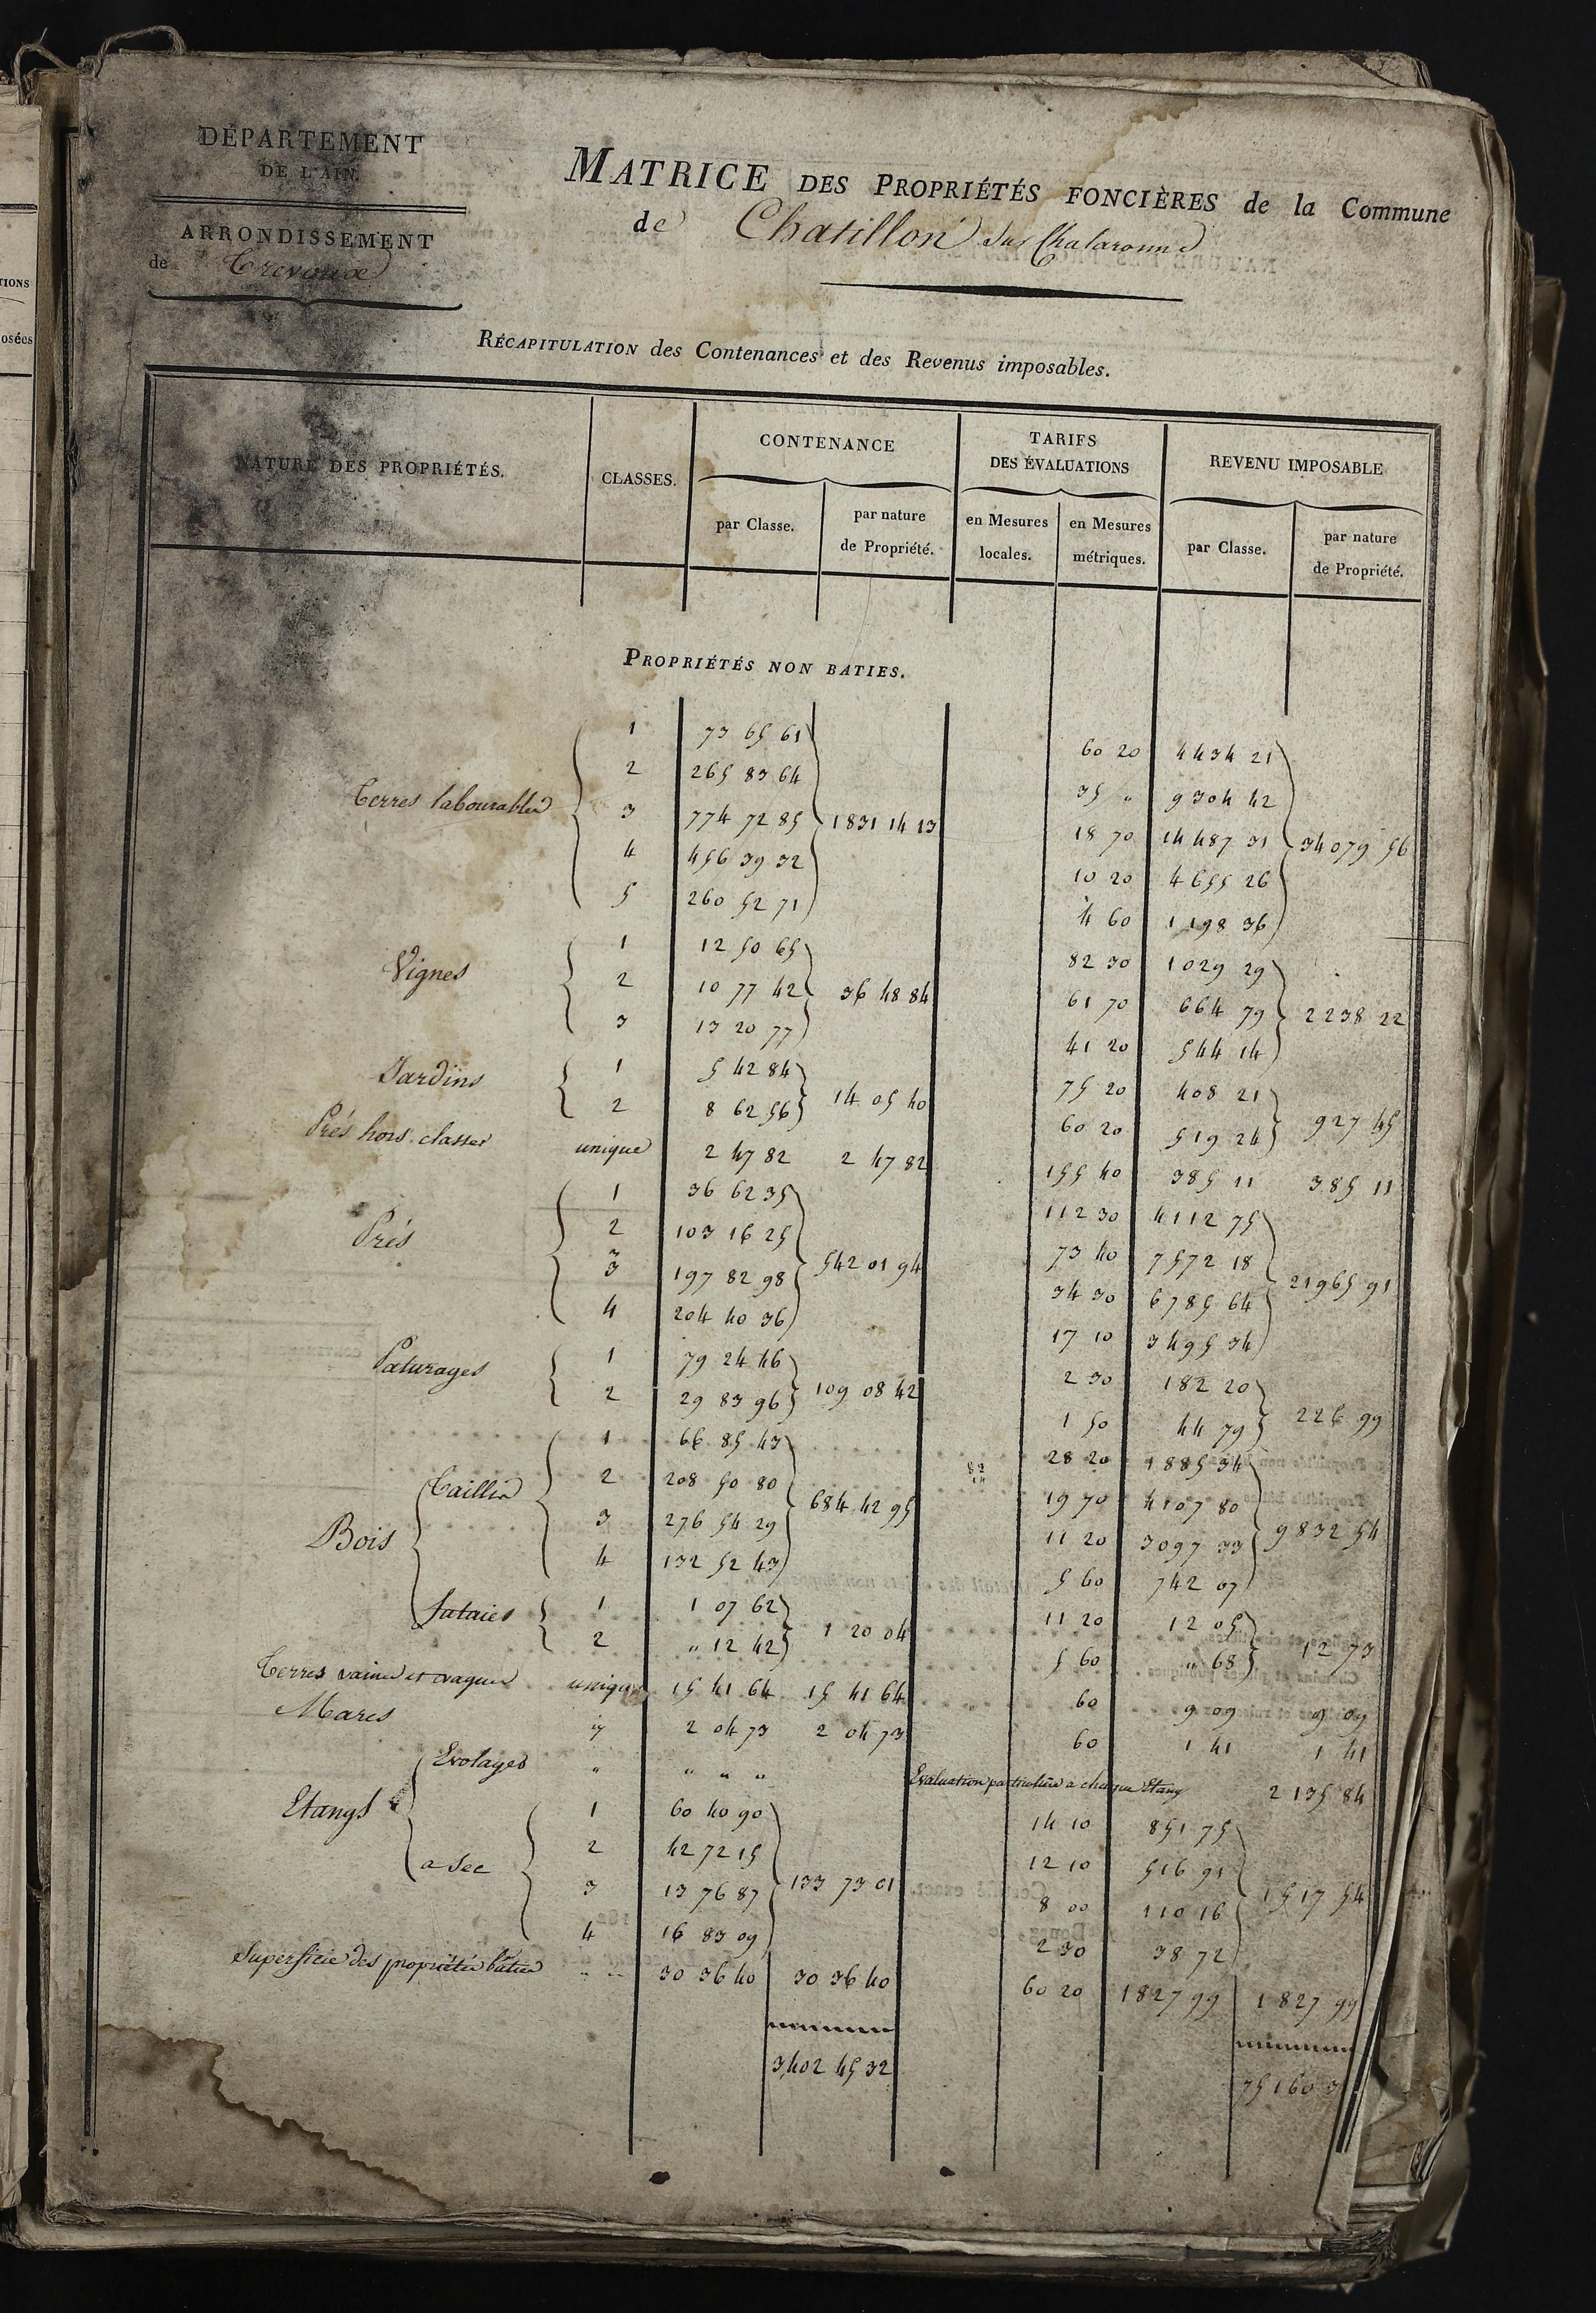 DÉPARTEMENT
DE L'AIN.
ARRONDISSEMENT
de Trevoux
MATRICE DES PROPRIÉTÉS FONCIÈRES de la Commune
de Chatillon sur Chalaronne
RÉCAPITULATION des Contenances et des Revenus imposables.
NATURE DES PROPRIÉTÉS. CLASSES. CONTENANCE TARIFS DES ÉVALUATIONS REVENU IMPOSABLE
par Classe. par nature de Propriété. en Mesures locales. en Mesures métriques. par Classe. par nature de Propriété.
PROPRIÉTÉS NON BATIES.
1 73 65 61 60 20 4434 21
2 265 83 64 35 " 9304 42
Terres labourables 3 774 72 85 1831 14 13 18 70 14487 31 34079 56
4 456 39 32 10 20 4655 26
5 260 52 71 4 60 1198 36
1 12 50 65 82 30 1029 29
Vignes 2 10 77 42 36 48 84 61 70 664 79 2238 22
3 13 20 77 41 20 544 14
Jardins 1 5 42 84 14 05 40 75 20 408 21 927 45
2 8 62 56 60 20 519 24
Prés hors classes unique 2 47 82 2 47 82 155 40 385 11 385 11
1 36 62 35 112 30 4112 75
Prés 2 103 16 25 542 01 94 73 40 7572 18 21965 91
3 197 82 98 34 30 6785 64
4 204 40 36 17 10 3495 34
Paturages 1 79 24 46 109 08 42 2 30 182 20 226 99
2 29 83 96 1 50 44 79
1 66 85 43 28 20 1885 34
Bois Taillis 2 208 50 80 684 42 95 19 70 4107 80 9832 54
3 276 54 29 11 20 3097 33
4 132 52 43 5 60 742 07
futaies 1 1 07 62 1 20 04 11 20 12 05 12 73
2 " 12 42 5 60 " 68
Terres vaines et vagues unique 15 41 64 15 41 64 60 9 09 9 09
Mares 2 04 73 2 04 73 60 1 41 1 41
Etangs Evolages " " " " Evaluation particulière a chaque Etang 2135 84
1 60 40 90 14 10 851 75
a sec 2 42 72 15 133 73 01 12 10 516 91 1517 54
3 13 76 87 8 00 110 16
4 16 83 09 2 30 38 72
Superficie des propriétés bâties " " 30 36 40 30 36 40 60 20 1827 99 1827 99
3402 45 32 75160 3